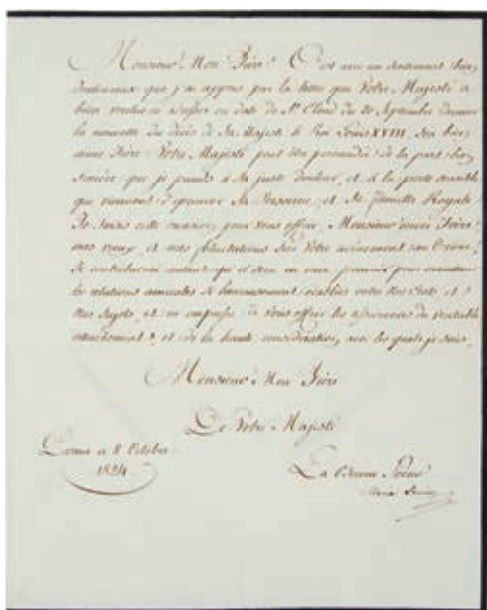 Monsieur Mon Frère! C'est avec un sentiment bien
douloureux que j'ai appris par la lettre que Votre Majesté a
bien voulu m'adresser en date de St. Cloud du 20 Septembre dernier
la nouvelle du décès de Sa Majesté le Roi Louis XVIII Son bien
aimé Frère. Votre Majesté peut être persuadée de la part bien
sincère que je prends à Sa juste douleur, et à la perte sensible
que viennent d'éprouver Sa Personne, et Sa Famille Royale
Je saisis cette occasion pour Vous offrir, Monsieur mon Frère!
mes vœux, et mes félicitations sur Votre avènement au Trône!
Je contribuerai autant qu'il sera en mon pouvoir pour maintenir
les relations amicales si heureusement établies entre Nos États, et
Nos Sujets, et m'empresse de Vous offrir les assurances du véritable
attachement, et de la haute considération, avec les quels je suis,
Monsieur Mon Frère
De Votre Majesté
ce 8 Octobre
1824
La bonne Sœur
Marie